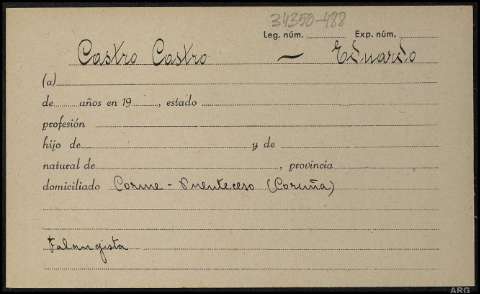 34350-488
Leg. núm. Exp. núm.
Castro Castro — Eduardo
(a)
de años en 19 , estado
profesión
hijo de y de
natural de , provincia
domiciliado Corme - Puenteceso (Coruña)
Falangista
ARG